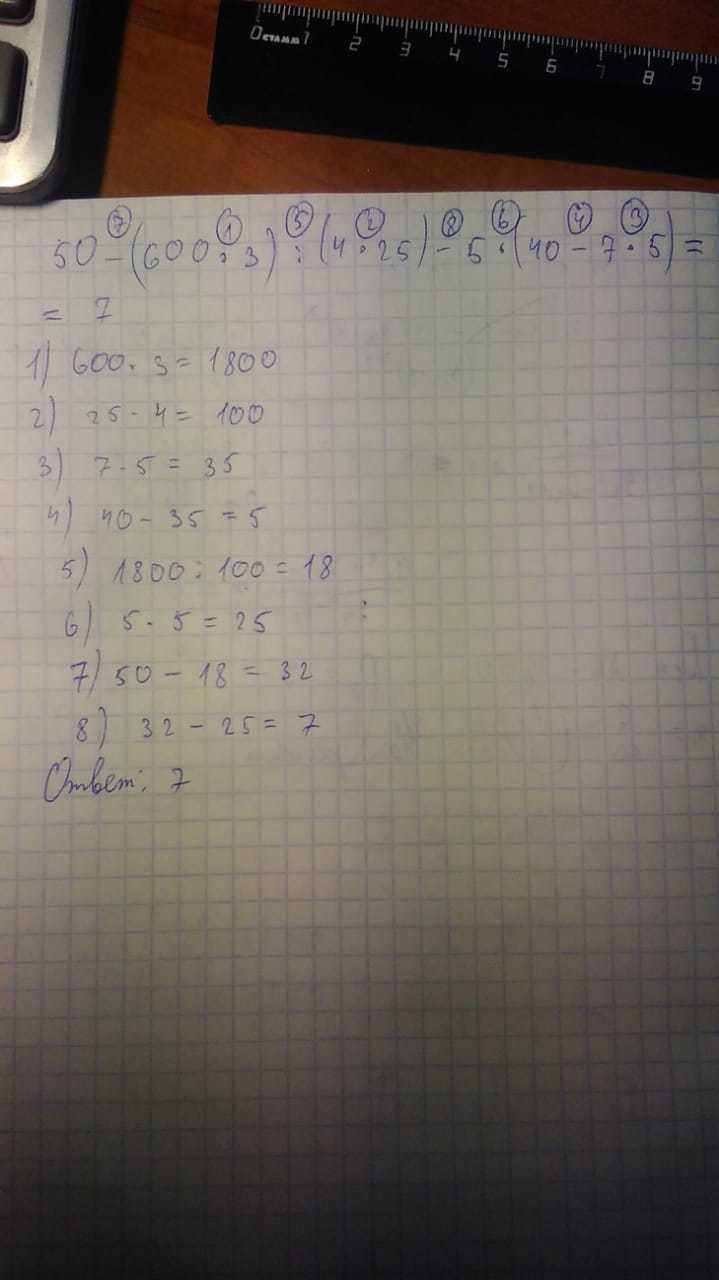 0 стамм 1 2 3 4 5 6 7 8 9
⑦ ① ⑤ ② ⑧ ⑥ ④ ③
50 - (600 · 3) : (4 · 25) - 5 · (40 - 7 · 5) =
= 7
1) 600 · 3 = 1800
2) 25 · 4 = 100
3) 7 · 5 = 35
4) 40 - 35 = 5
5) 1800 : 100 = 18
6) 5 · 5 = 25
7) 50 - 18 = 32
8) 32 - 25 = 7
Ответ: 7